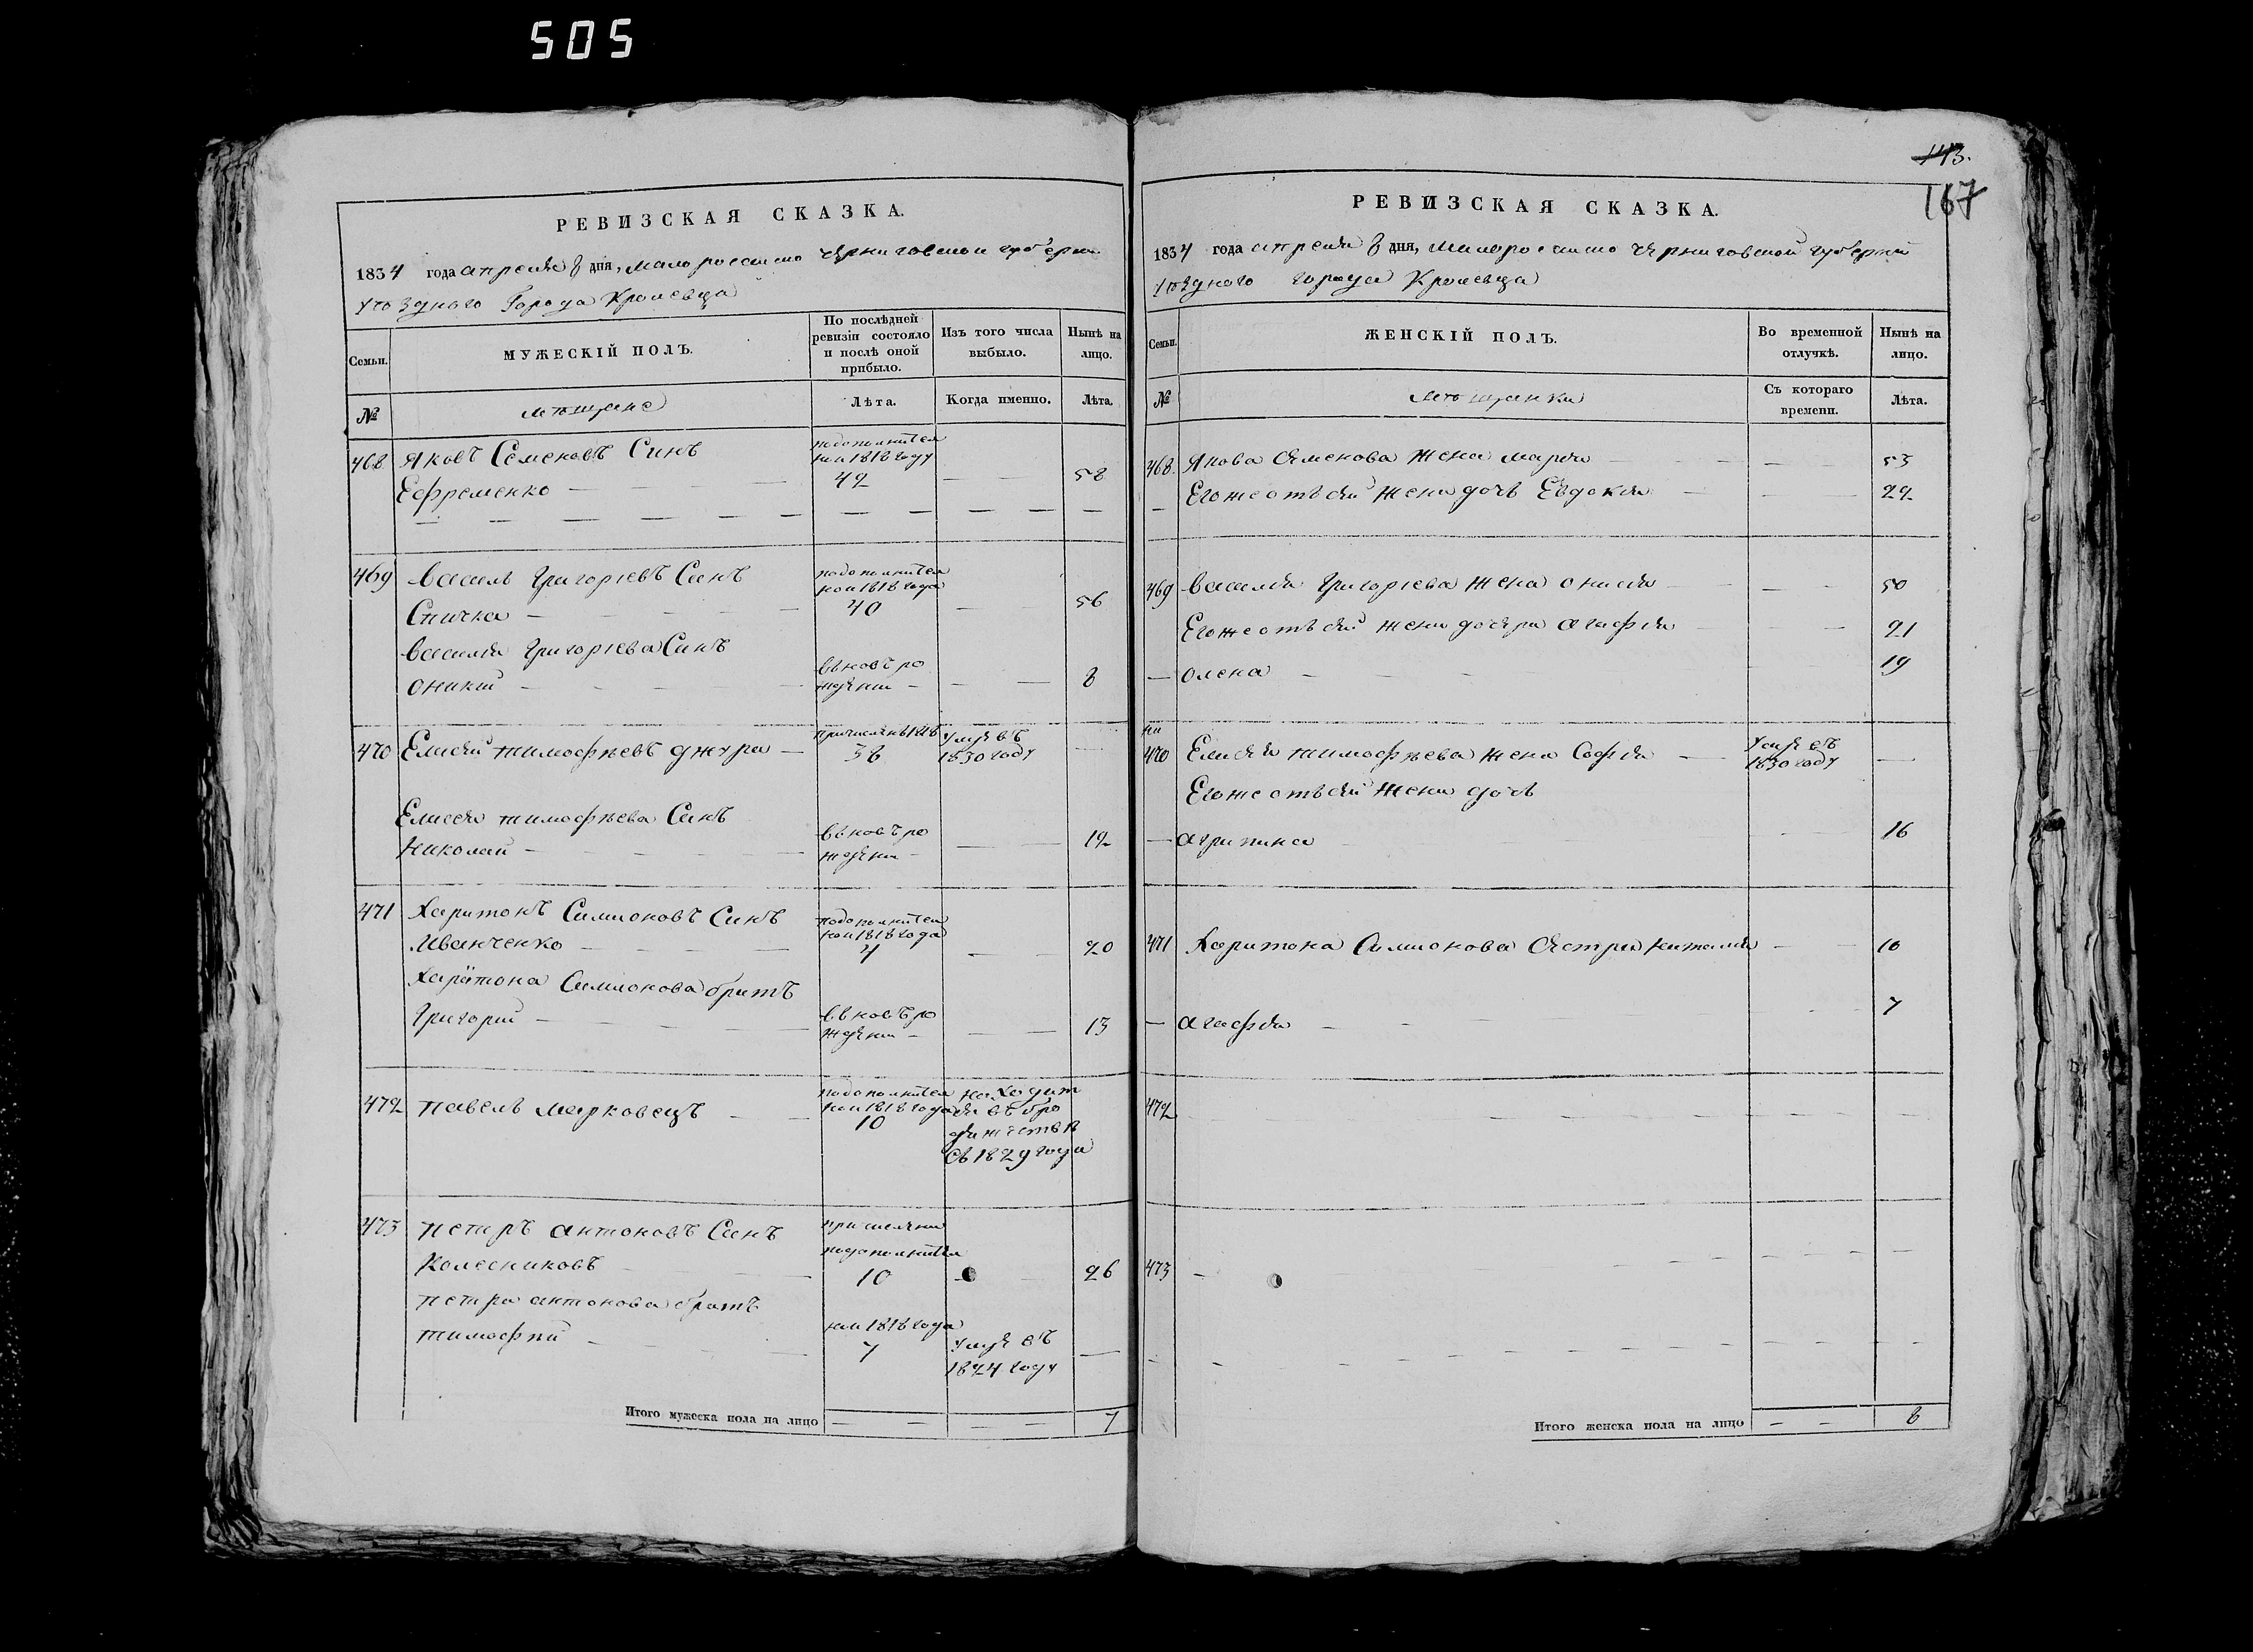 505
РЕВИЗСКАЯ СКАЗКА.
1834 года апреля 8 дня, малороссийско Черниговской губерни
уездного Города Кролевца
Семьи.
МУЖЕСКІЙ ПОЛЪ.
По послѣдней ревизіи состояло и послѣ оной прибыло.
Изъ того числа выбыло.
Нынѣ на лицо.
№
мѣщане
Лѣта.
Когда именно.
Лѣта.
468 Яковъ Семеновъ Синъ
подополнител
ной 1818 году
Ефременко
42
58
469 Василь Григорїевъ Синъ
подополнител
ной 1818 года
Спичка
40
56
Василя Григорїева Синъ
Оникий
вновъ ро
жденни
8
470 Елисей тимофѣевъ джура
причисленъ 1818
38
умре въ
1830 году
Елисея тимофѣева Синъ
Николай
вновъ ро
ждени
12
471 Харитонъ Симионовъ Синъ
подополнител
ной 1818 года
Иванченко
4
20
Харитона Симионова братъ
Григорий
вновъ ро
ждени
13
472 павелъ марковецъ
подополнител
ной 1818 года
10
находит
ся въ бро
дяжествѣ
съ 1829 года
473 петръ антоновъ Синъ
причислени
подополнител
Колесниковъ
10
26
петра антонова братъ
ной 1818 года
тимофѣй
7
умре въ
1824 году
Итого мужеска пола на лицо
7
143.
167
РЕВИЗСКАЯ СКАЗКА.
1834 года апреля 8 дня, малороссийско Черниговской губерний
уездного города Кролевца
Семьи.
ЖЕНСКІЙ ПОЛЪ.
Во временной отлучкѣ.
Нынѣ на лицо.
№
мѣщанки
Съ котораго времени.
Лѣта.
468. Якова Семенова жена мария
53
Егожеотъсей жени дочъ Евдокия
22
469 Василя Григорїева жена онисия
50
Егожеотъсей жени дочери агафия
21
олена
19
470 Елисея тимофѣева жена София
умре въ
1830 году
Егожеотъсей жени дочъ
агрипина
16
471 Харитона Симионова Сестри наталия
10
агафия
7
472
473
Итого женска пола на лицо
8